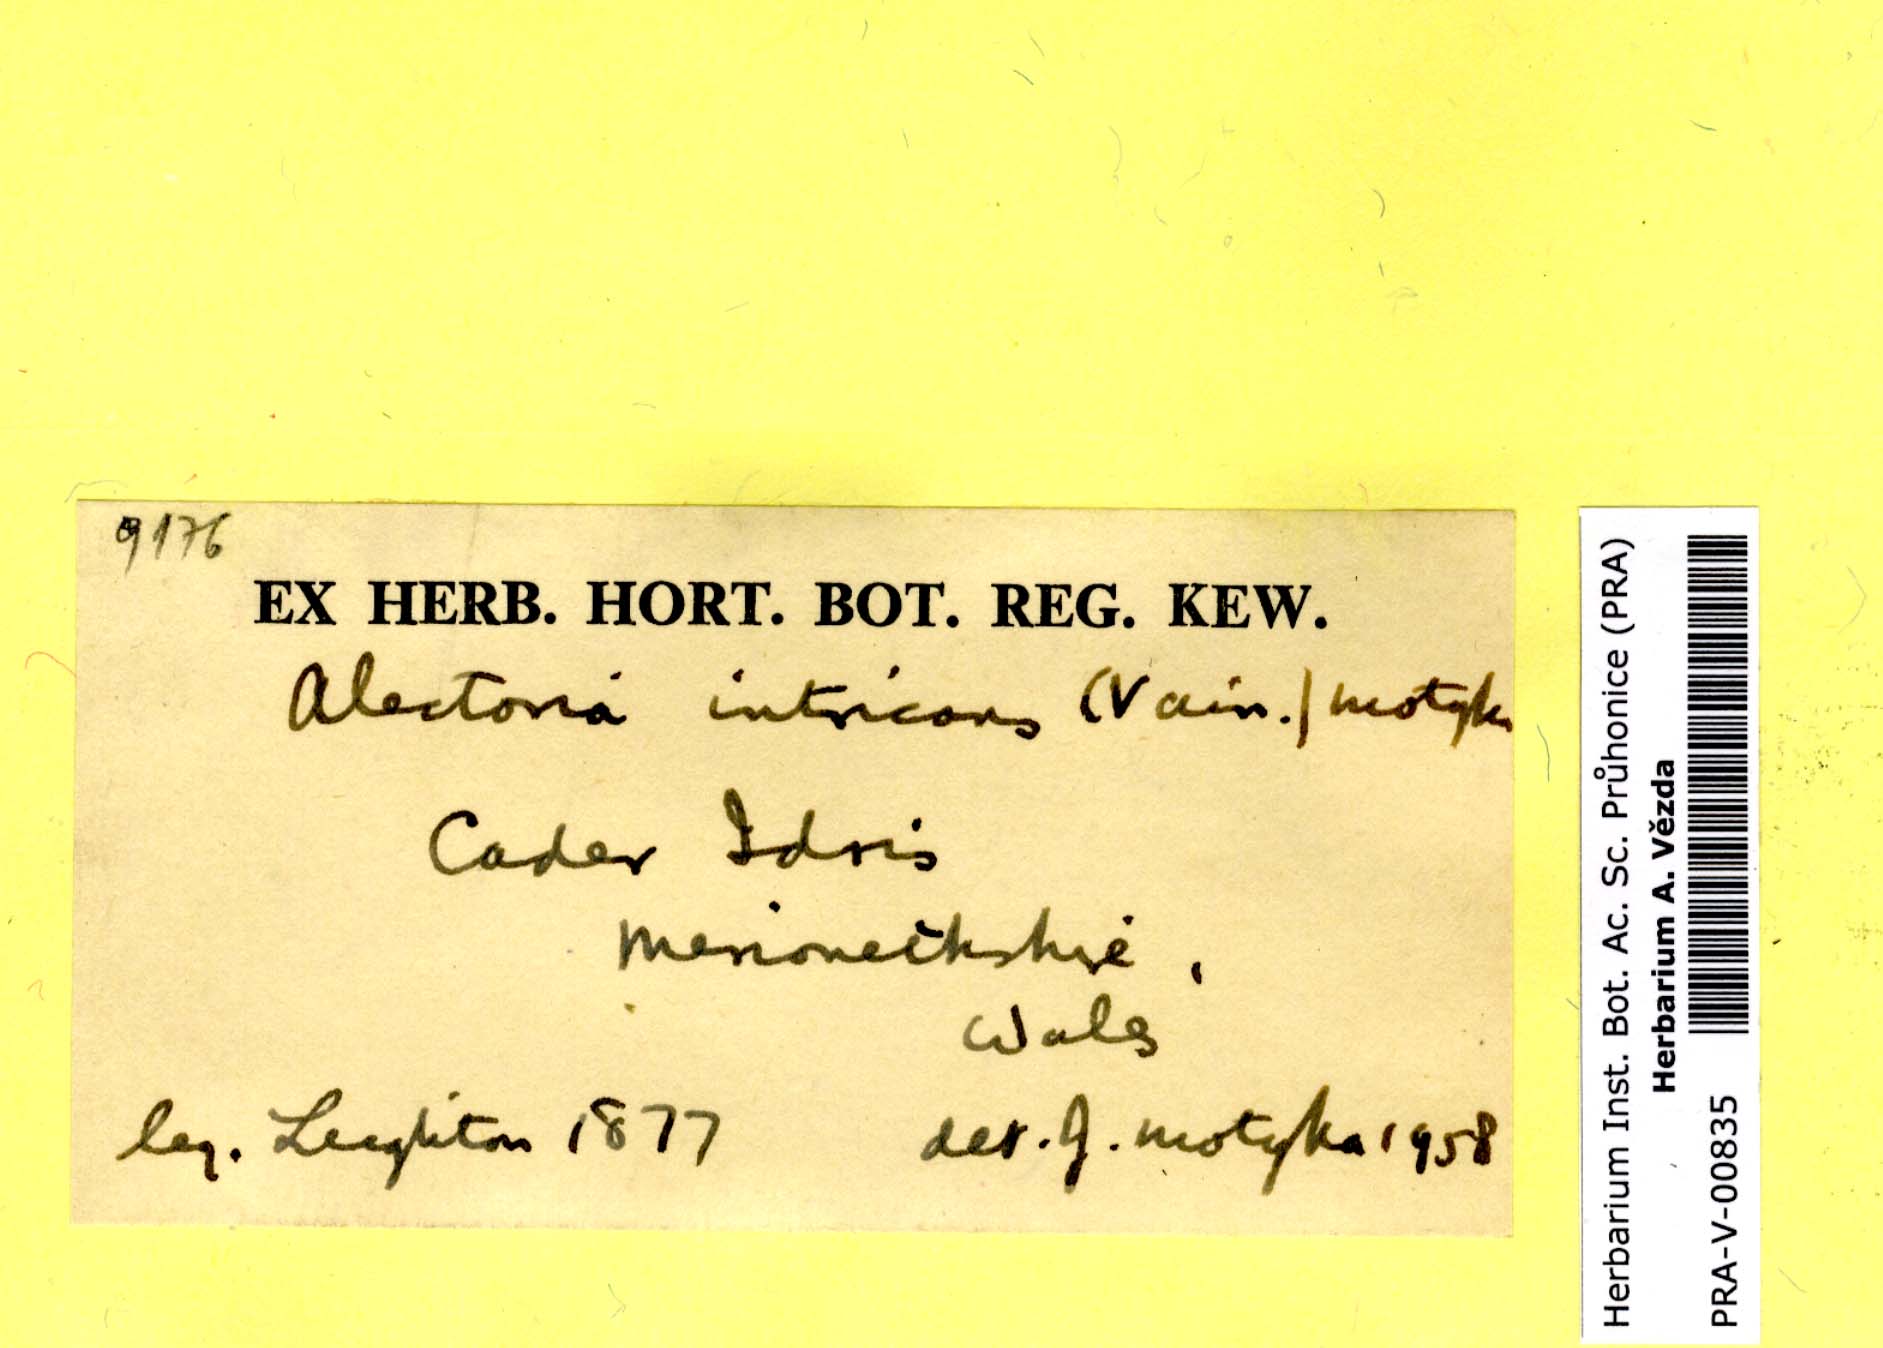 9176
EX HERB. HORT. BOT. REG. KEW.
Alectoria intricans (Vain.) Motyka
Cader Idris
Merionethshire,
Wales
leg. Leighton 1877
det. J. Motyka 1958
Herbarium Inst. Bot. Ac. Sc. Průhonice (PRA)
Herbarium A. Vězda
PRA-V-00835